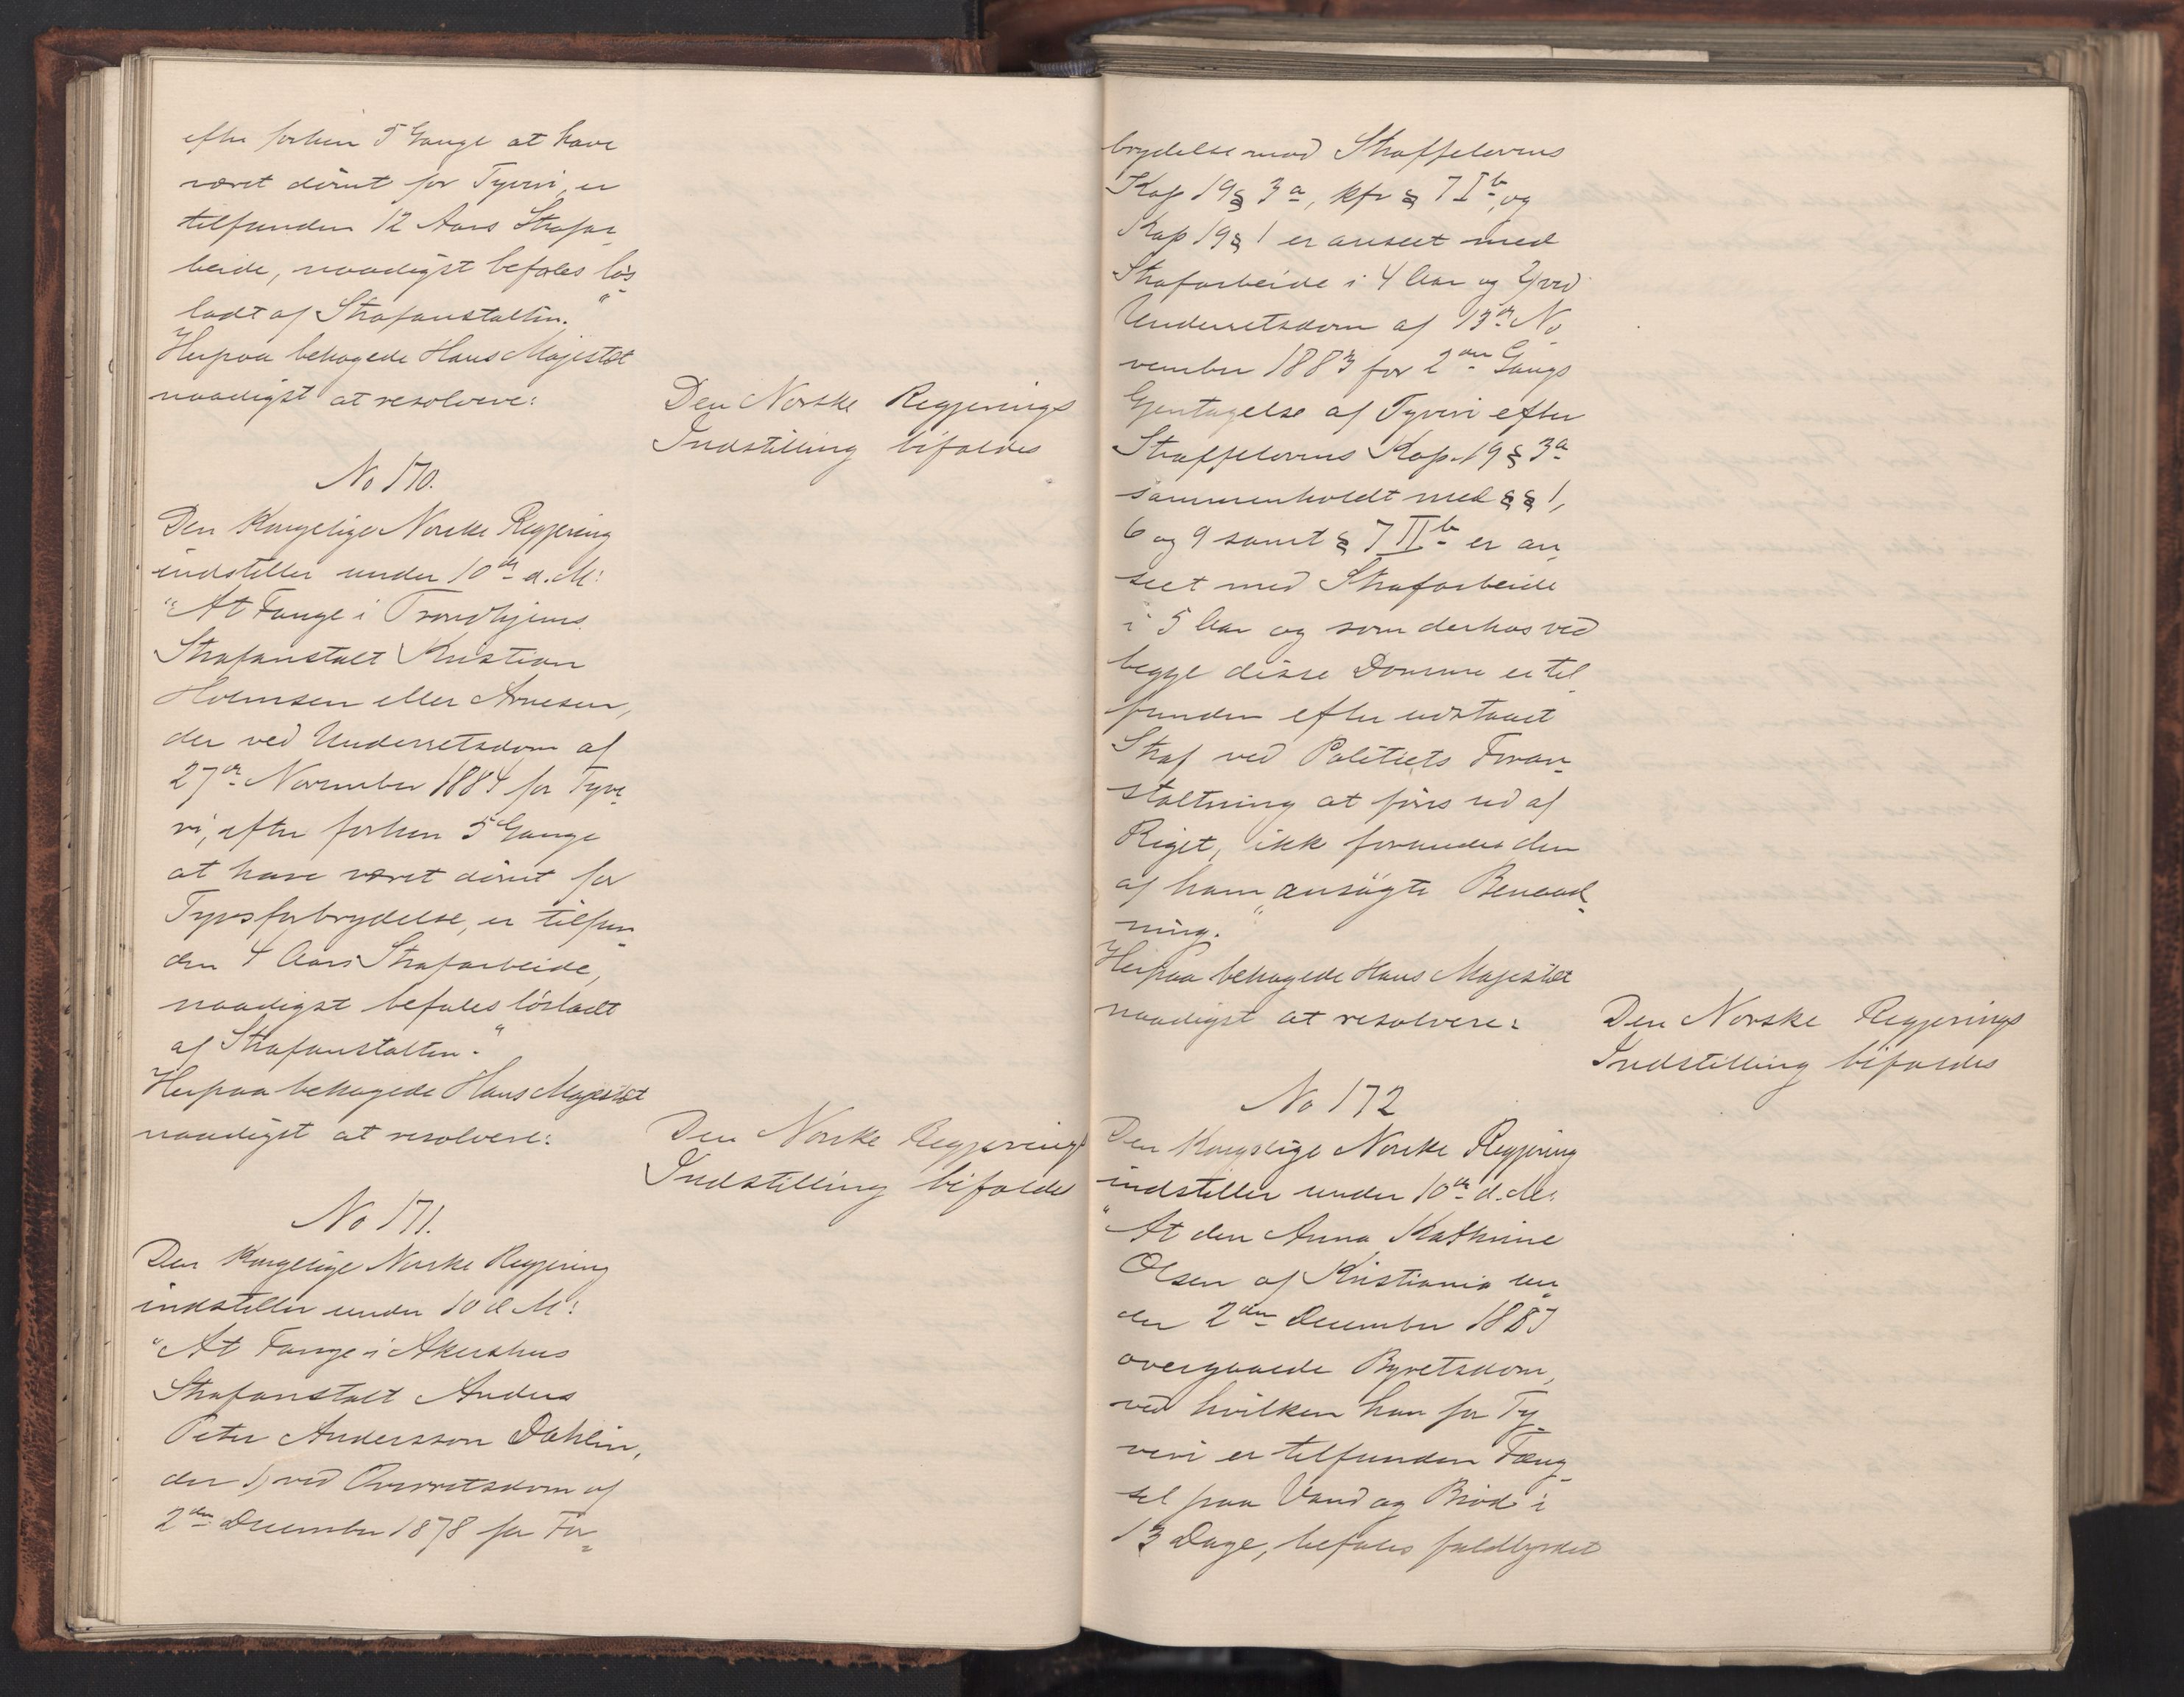 efter forhen 5 Gange at have
været dömt for Tyveri, er
tilfunden 12 Aars Strafar-
beide, naadigst befales lös-
ladt af Strafanstalten."
Herpaa behagede Hans Majestæt
naadigst at resolvere:
Den Norske Regjerings
Indstilling bifaldes
No 170.
Den Kongelige Norske Regjering
indstiller under 10de d. M:
"At Fange i Trondhjems
Strafanstalt Kristian
Holmsen eller Arnesen,
der ved Underretsdom af
27de November 1884 for Tyve-
ri, efter forhen 5 Gange
at have været dömt for
Tyvsforbrydelse, er tilfun-
den 4 Aars Strafarbeide,
naadigst befales lösladt
af Strafanstalten."
Herpaa behagede Hans Majestæt
naadigst at resolvere:
Den Norske Regjerings
Indstilling bifaldes
No 171.
Den Kongelige Norske Regjering
indstiller under 10 d. M:
"At Fange i Akershus
Strafanstalt Anders
Peter Andersson Dahlin,
der 1) ved Overretsdom af
2den December 1878 for For-
brydelse mod Straffelovens
Kap 19 § 3 a, kfr § 7 I b, og
Kap 19 § 1 er anseet med
Strafarbeide i 4 Aar og 2) ved
Underretsdom af 13de No-
vember 1883 for 2den Gangs
Gjentagelse af Tyveri efter
Straffelovens Kap. 19 § 3 a
sammenholdt med § § 1,
6 og 9 samt § 7 II b er an-
seet med Strafarbeide
i 5 Aar og som derhos ved
begge disse Domme er til-
funden efter udstaaet
Straf ved Politiets Foran-
staltning at föres ud af
Riget, ikke forundes den
af ham ansögte Benaad-
ning."
Herpaa behagede Hans Majestæt
naadigst at resolvere:
Den Norske Regjerings
Indstilling bifaldes
No 172
Den Kongelige Norske Regjering
indstiller under 10de d. M:
"At den Anna Kathrine
Olsen af Kristiania un-
der 2den December 1887
overgaaede Byretsdom,
ved hvilken hun for Ty-
veri er tilfunden Fæng-
sel paa Vand og Bröd i
13 Dage, befales fuldbyrdet